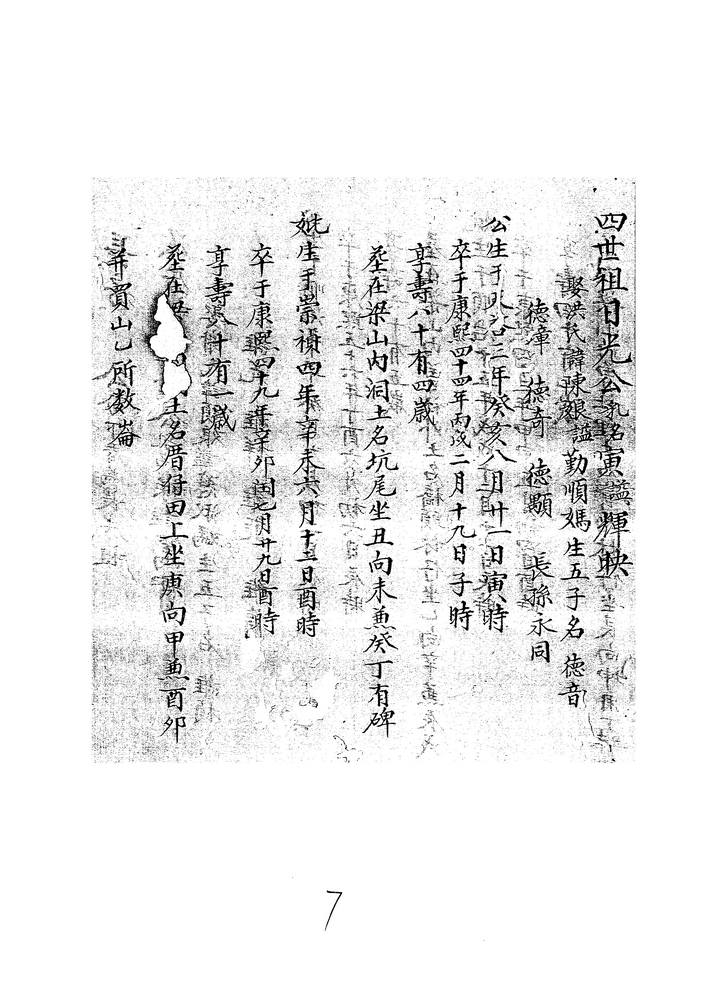 四世祖日光公乳名寅謚輝映
娶洪氏諱陳娘謚勤順媽生五子名德音
德璋 德奇 德顯 長孫永同
公生于天啟三年癸亥八月廿一日寅時
卒于康熙四十四年丙戌二月十九日子時
享壽八十有四歲
塟在梁山内洞土名坑尾坐丑向未兼癸丁有碑
妣生于崇禎四年辛未六月十三日酉時
卒于康熙四十九年辛卯閏七月廿九日酉時
享壽八十有一歲
塟在梁 土名厝得田工坐庚向甲兼酉卯
并買山乙所数崙
7